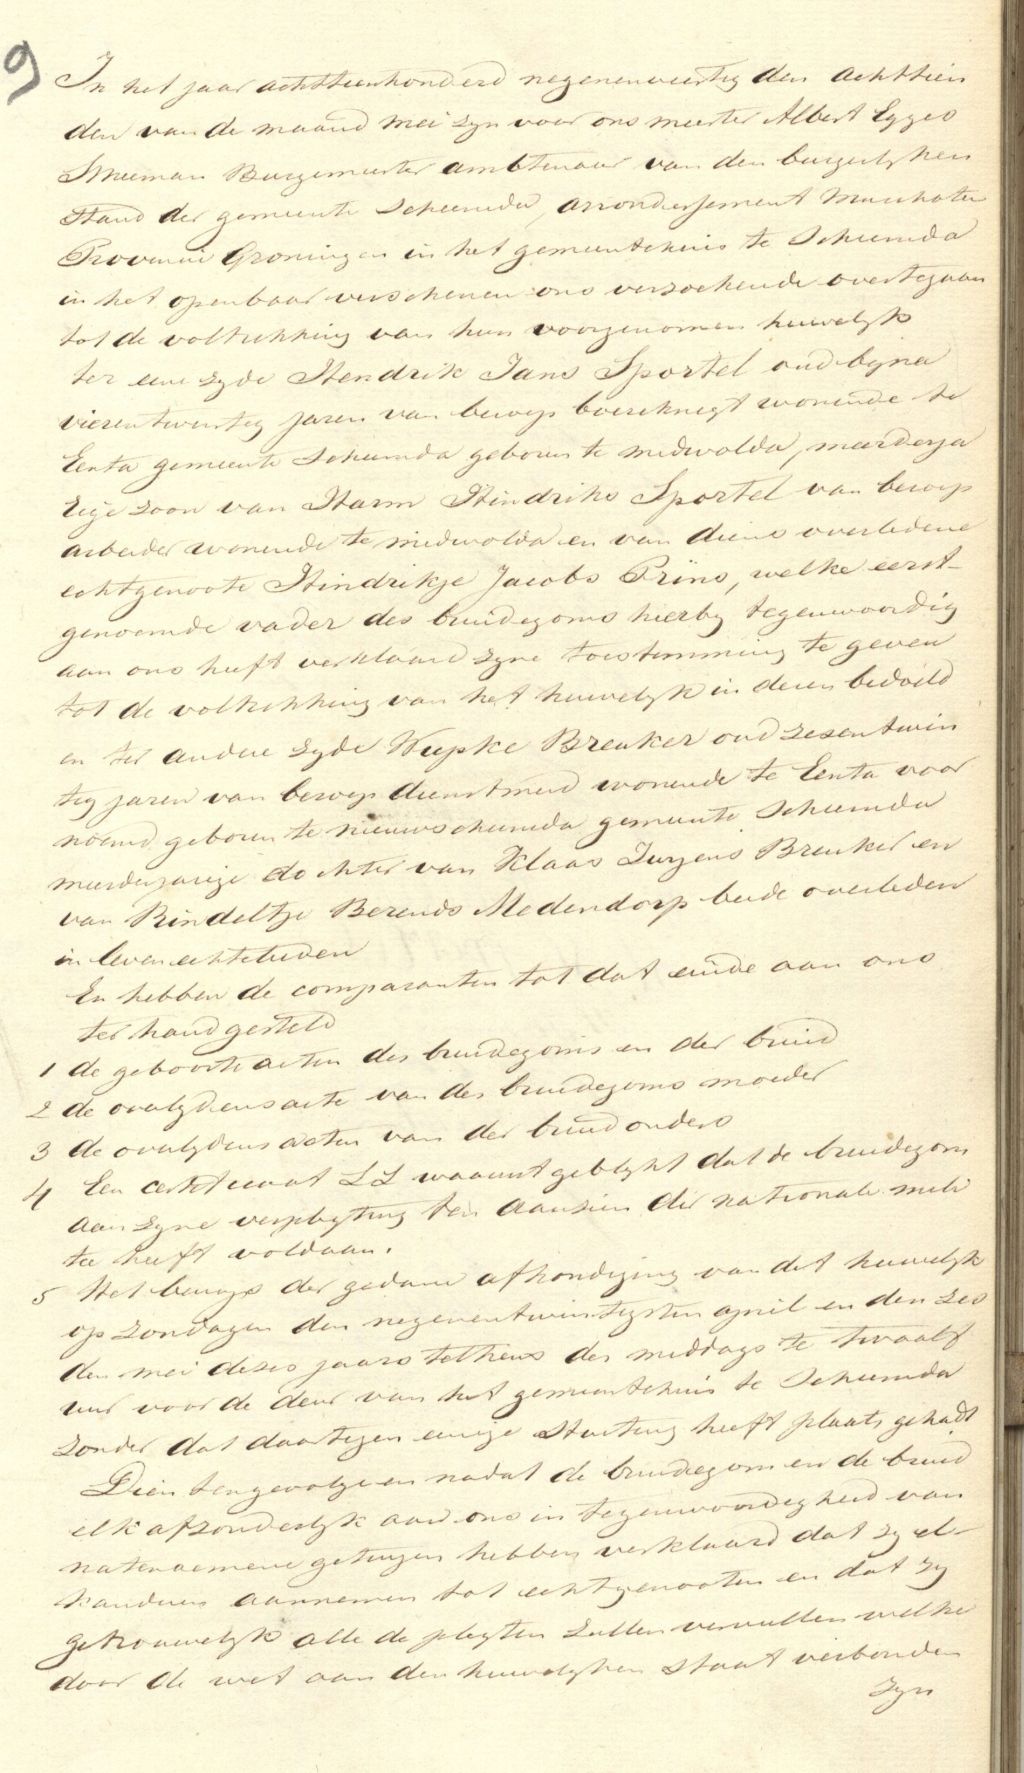 9
In het jaar achttienhonderd negenenveertig den achttien
den van de maand mei zyn voor ons meester Albert Egges
Meeman Burgemeester ambtenaar van den burgerlyken
stand der gemeente Scheemda, arrondissement Winschoten
Provincie Groningen in het gemeentehuis te Scheemda
in het openbaar verschenen ons verzoekende overtegaan
tot de voltrekking van hun voorgenomen huwelyk
ter eene zyde Hendrik Jans Sportel oud byna
vierentwintig jaren van beroep boereknegt wonende te
Eexta gemeente Scheemda geboren te midwolda, meerderja
rige zoon van Harm Hindriks Sportel van beroep
arbeider wonende te midwolda en van diens overledene
echtgenoote Hindrikje Jacobs Prins, welke eerst-
genoemde vader des bruidegoms hierby tegenwoordig
aan ons heeft verklaard zyne toestemming te geven
tot de voltrekking van het huwelyk in dezen bedoeld
en ter andere zyde Wupke Breuker oud zesentwin
tig jaren van beroep dienstmeid wonende te Eexta voor
noemd geboren te nieuwscheemda gemeente Scheemda
meerderjarige dochter van Klaas Jurjens Breuker en
van Rindeltje Berends Medendorp beide overleden
in leven echtelieden
En hebben de comparanten tot dat einde aan ons
ter hand gesteld
1 de geboorte acten des bruidegoms en der bruid
2 de overlydensacte van des bruidegoms moeder
3 de overlydens acten van der bruid ouders
4 Een certificaat LL waaruit geblykt dat de bruidegom
aan zyne verpligting ten aanzien der nationale mili
tie heeft voldaan.
5 Het bewys der gedane afkondiging van dit huwelyk
op zondagen den negenentwintigsten april en den zes
den mei dezes jaars telkens des middags te twaalf
uur voor de deur van het gemeentehuis te Scheemda
zonder dat daartegen eenige stuiting heeft plaats gehad
Dien tengevolge en nadat de bruidegom en de bruid
elk afzonderlyk aan ons in tegenwoordigheid van
natenoemene getuigen hebben verklaard dat zy el-
kanderen aannemen tot echtgenooten en dat zy
getrouwelyk alle de pligten zullen vervullen welke
door de wet aan den huwelyken staat verbonden
zyn